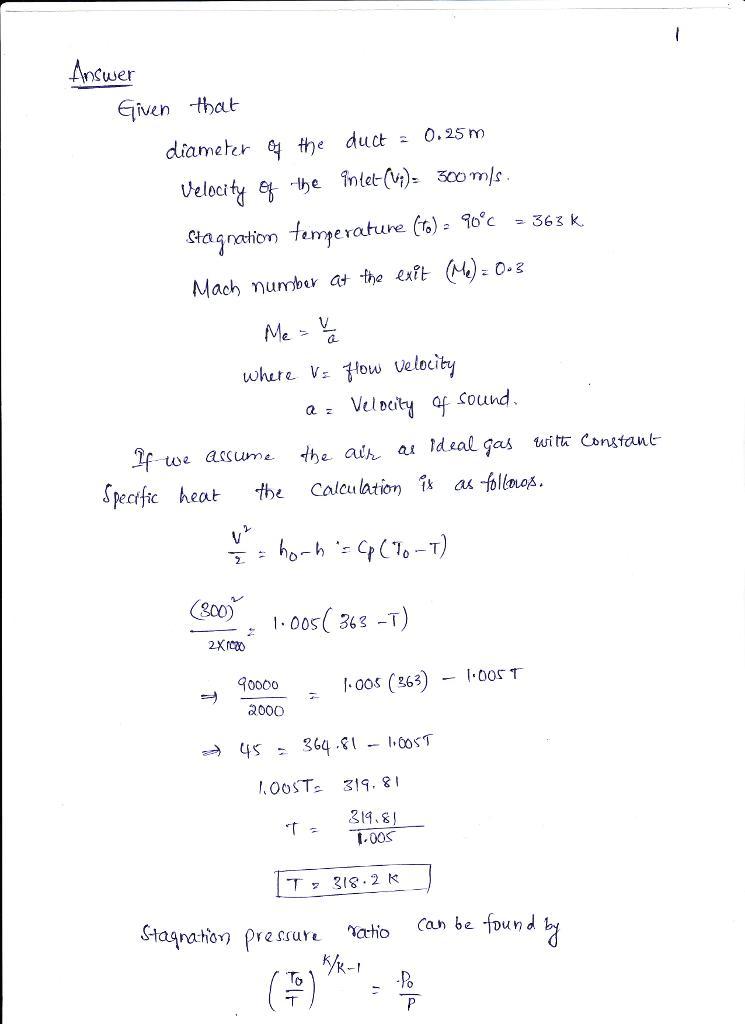 1
Answer
Given that
diameter of the duct = 0.25m
Velocity of the inlet (Vi) = 300 m/s.
Stagnation temperature (To) = 90°C = 363 K
Mach number at the exit (Me) = 0.3
Me = V/a
where V = flow velocity
a = Velocity of sound.
If we assume the air as ideal gas with constant
Specific heat the calculation is as follows.
V²/2 = ho-h = Cp(To-T)
(300)²/2x1000 = 1.005(363-T)
⇒ 90000/2000 = 1.005(363) - 1.005T
⇒ 45 = 364.81 - 1.005T
1.005T = 319.81
T = 319.81/1.005
T = 318.2 K
Stagnation pressure ratio can be found by
(To/T)^K/K-1 = Po/P